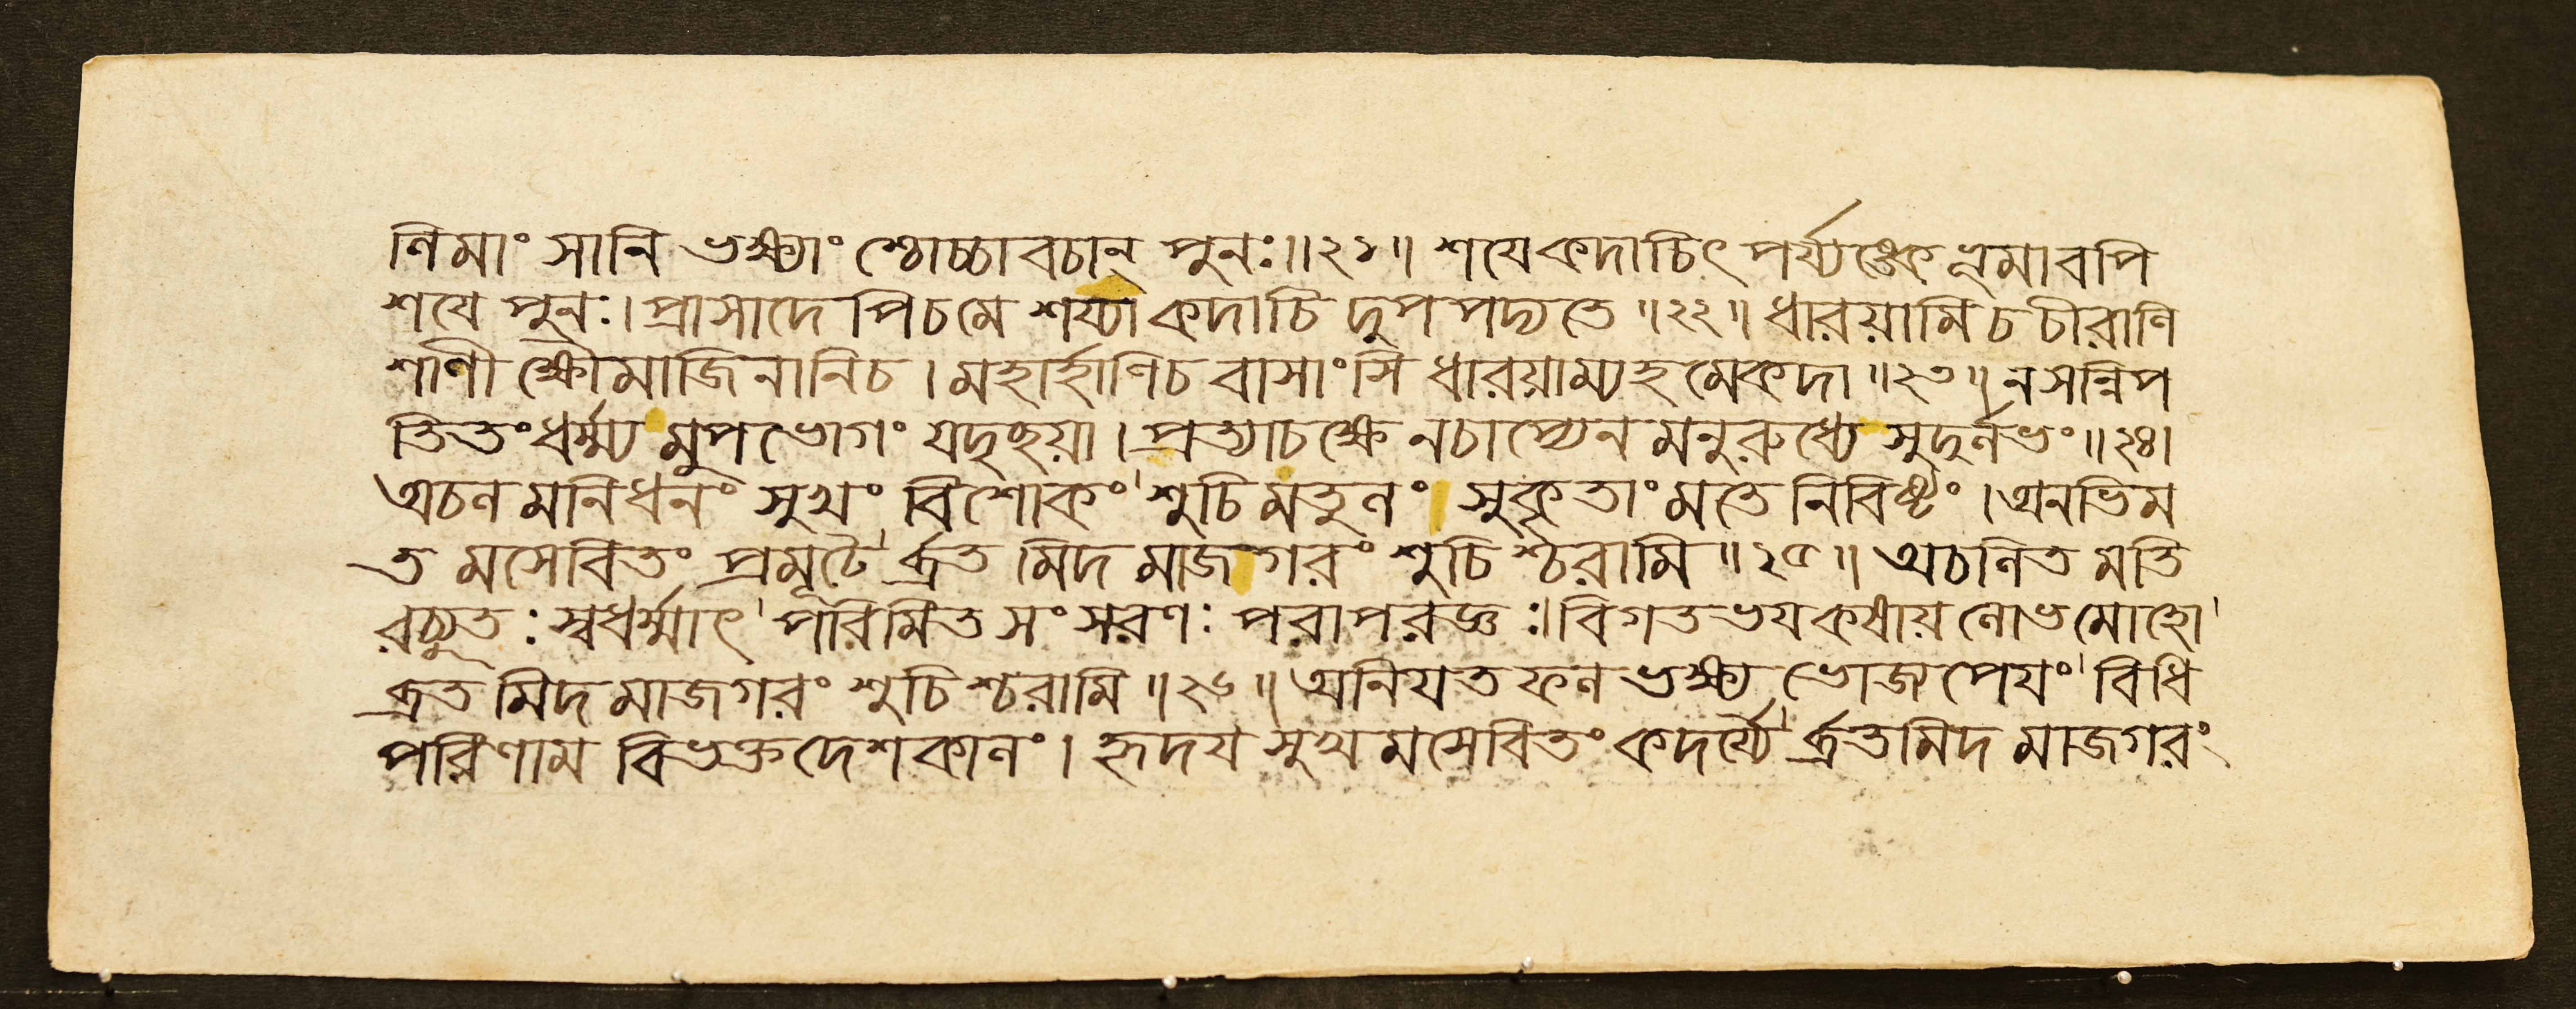 ণিমাংসানি ভক্ষ্যাংশ্চোচ্চাবচান্ পুনঃ॥২১॥ শযেকদাচিৎ পর্য্যঙ্কে ভূমাবপি
শযে পুনঃ। প্রাসাদে পিচমে শয্যা কদাচি দুপপদ্যতে॥২২॥ ধারয়ামি চ চীরাণি
শাণী ক্ষৌমাজিনানিচ। মহার্হাণিচ বাসাংসি ধারয়াম্যহ মেকদা॥২৩॥ ন সন্নিপ
তিতং ধর্ম্ম্য মুপভোগং যদৃচ্ছয়া। প্রত্যাচক্ষে নচাপ্যেন মনুরুধ্যে সুদুর্লভং॥২৪।
অচল মনিধনং সুখং বিশোকং' শুচি মতুলং সুকৃতাং মতে নিবিষ্টং। অনভিম
ত মসেবিতং প্রমূঢৈ'র্ব্রত মিদ মাজগরং শুচিশ্চরামি॥২৫॥ অচলিত মতি
রচ্যুতঃ স্বধর্ম্মাৎ' পরিমিত সংসরণঃ পরাপরজ্ঞঃ। বিগতভযকষায় লোভমোহো'
ব্রত মিদ মাজগরং শুচিশ্চরামি॥২৬॥ অনিযত ফল ভক্ষ্য ভোজ্য পেযং' বিধি
পরিণাম বিভক্তদেশকালং। হৃদয সুখ মসেবিতং কদর্য্যৈ'র্ব্রতমিদ মাজগরং